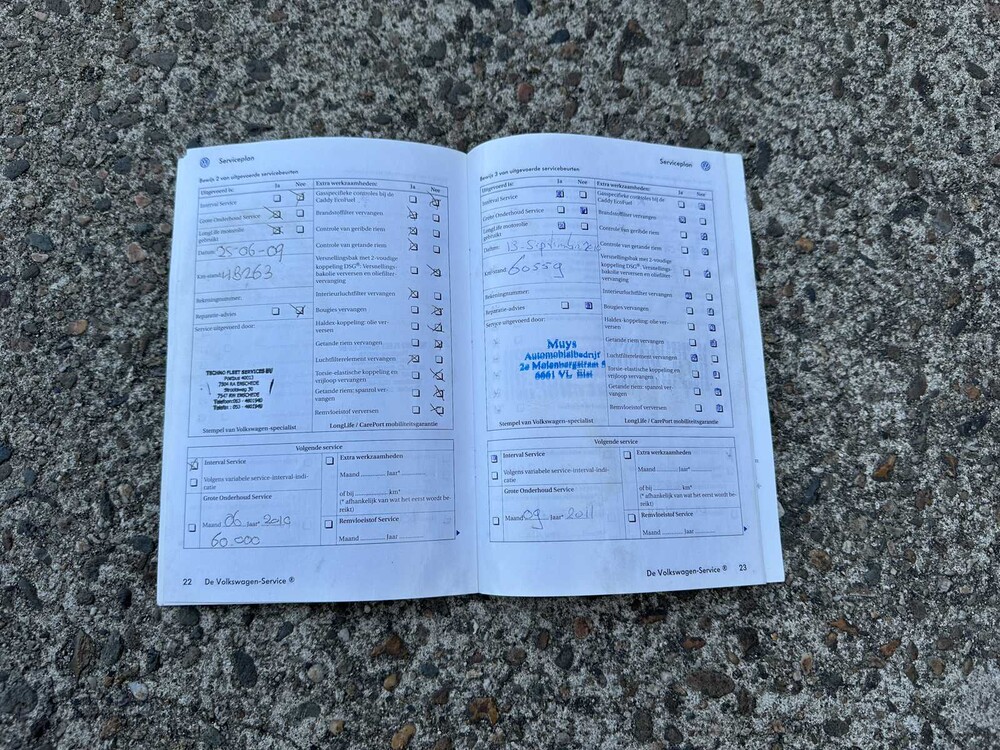 Serviceplan
Bewijs 2 van uitgevoerde servicebeurten
Uitgevoerd is: Ja Nee
Interval Service
Grote Onderhoud Service
LongLife motorolie gebruikt
Datum: 25-06-09
Km-stand: 48263
Rekeningnummer:
Reparatie-advies
Service uitgevoerd door:
TECHNO FLEET SERVICES BV
Postbus 40013
7504 RA ENSCHEDE
7547 RW ENSCHEDE
Stempel van Volkswagen-specialist
Extra werkzaamheden: Ja Nee
Gasspecifieke controles bij de
Caddy EcoFuel
Brandstoffilter vervangen
Controle van geribde riem
Controle van getande riem
Versnellingsbak met 2-voudige
koppeling DSG®: Versnellings-
bakolie verversen en oliefilter-
vervanging
Interieurluchtfilter vervangen
Bougies vervangen
Haldex-koppeling: olie ver-
versen
Getande riem vervangen
Luchtfilterelement vervangen
Torsie-elastische koppeling en
vrijloop vervangen
Getande riem: spanrol ver-
vangen
Remvloeistof verversen
LongLife / CarePort mobiliteitsgarantie
Volgende service
Interval Service
Volgens variabele service-interval-indi-
catie
Grote Onderhoud Service
Maand 06 Jaar 2010
60.000
Extra werkzaamheden
Maand Jaar*
of bij km*
(* afhankelijk van wat het eerst wordt be-
reikt)
Remvloeistof Service
Maand Jaar
22 De Volkswagen-Service ®
Serviceplan
Bewijs 3 van uitgevoerde servicebeurten
Uitgevoerd is: Ja Nee
Interval Service
Grote Onderhoud Service
LongLife motorolie
gebruikt
Datum: 13-September
Km-stand: 60559
Rekeningnummer:
Reparatie-advies
Service uitgevoerd door:
Muys
Automobielbedrijf
2e Molenbergstraat
Stempel van Volkswagen-specialist
Extra werkzaamheden: Ja Nee
Gasspecifieke controles bij de
Caddy EcoFuel
Brandstoffilter vervangen
Controle van geribde riem
Controle van getande riem
Versnellingsbak met 2-voudige
koppeling DSG®: Versnellings-
bakolie verversen en oliefilter-
vervanging
Interieurluchtfilter vervangen
Bougies vervangen
Haldex-koppeling: olie ver-
versen
Getande riem vervangen
Luchtfilterelement vervangen
Torsie-elastische koppeling en
vrijloop vervangen
Getande riem: spanrol ver-
vangen
Remvloeistof verversen
LongLife / CarePort mobiliteitsgarantie
Volgende service
Interval Service
Volgens variabele service-interval-indi-
catie
Grote Onderhoud Service
Maand 09 Jaar 2011
Extra werkzaamheden
Maand Jaar*
of bij km*
(* afhankelijk van wat het eerst wordt be-
reikt)
Remvloeistof Service
Maand Jaar
De Volkswagen-Service ® 23